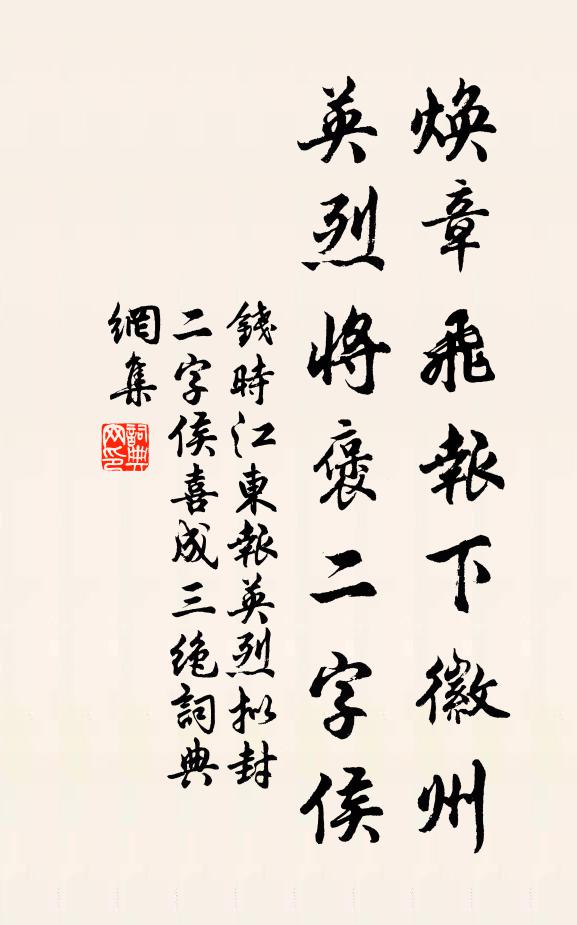 煥章飛報下徽州
英烈將褒二字侯
錢時江東報英烈拟封
二字侯喜成三绝詞典
網集
詞典
网印